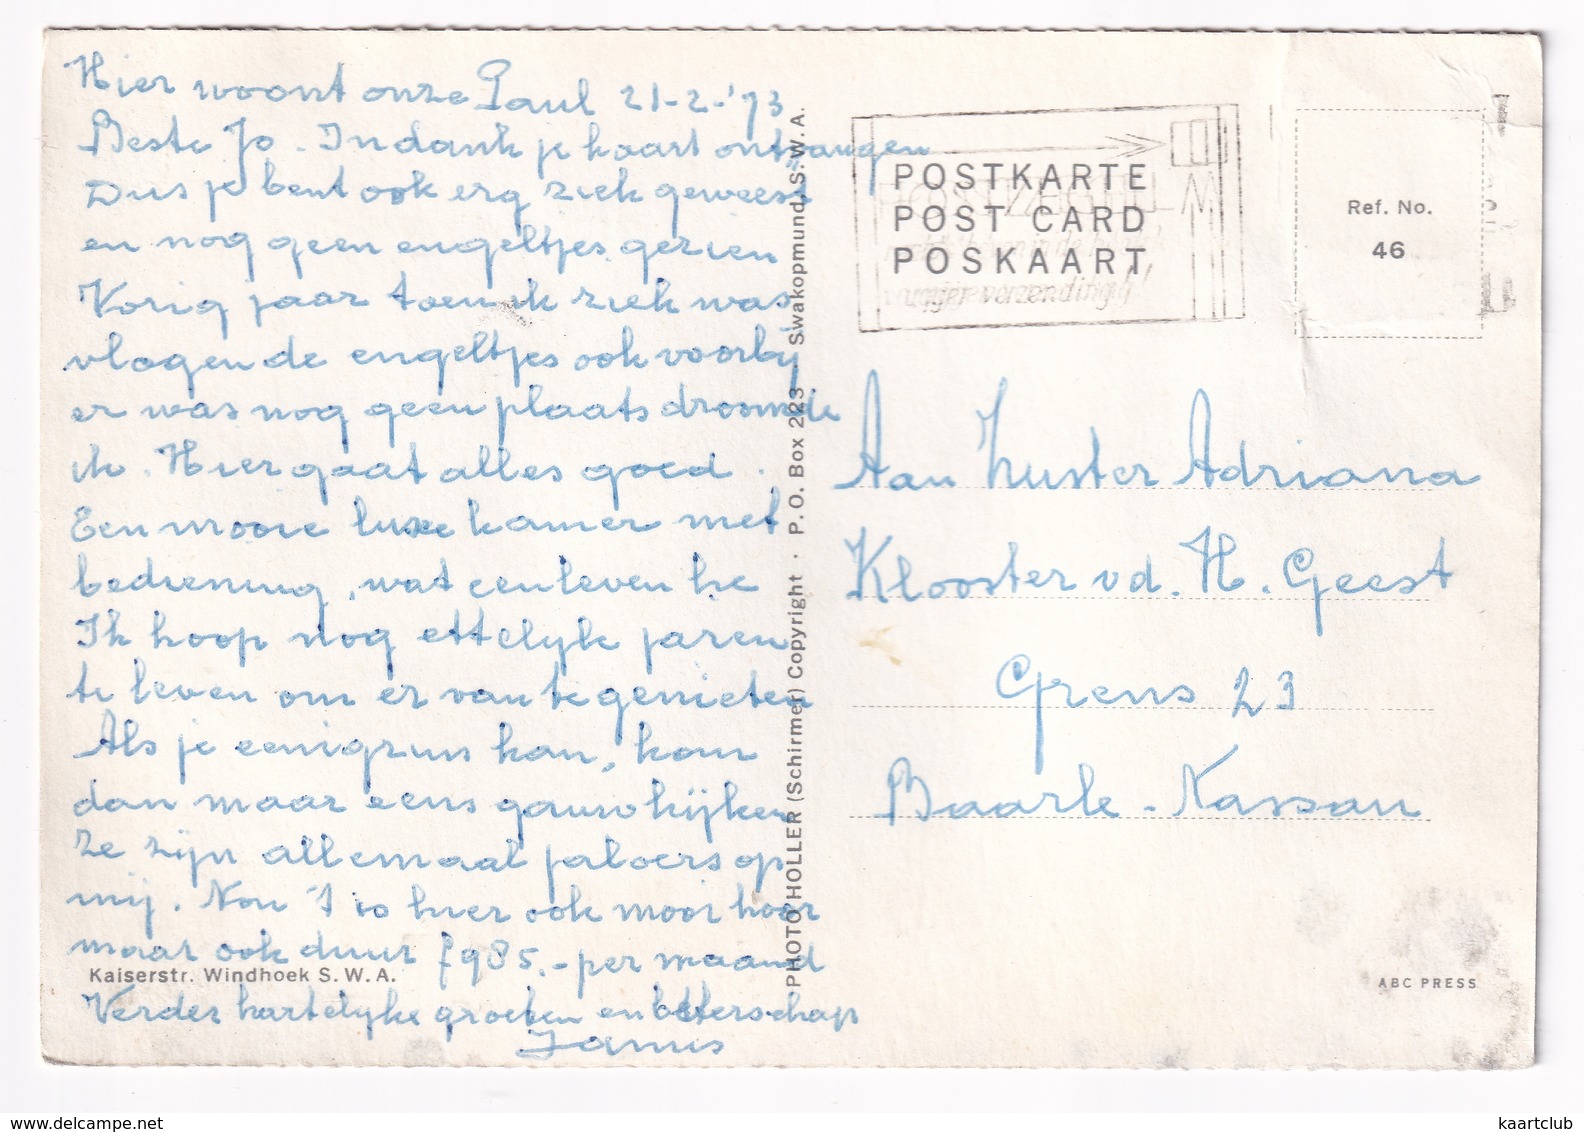 Hier woont onze Paul 21-2-'73
Beste Jo. In dank je kaart ontvangen
Dus je bent ook erg ziek geweest
en nog geen engeltjes gezien
Vorig jaar toen ik ziek was
vlogen de engeltjes ook voorbij
er was nog geen plaats droomde
ik. Hier gaat alles goed.
Een mooie luxe kamer met
bediening, wat een leven he
Ik hoop nog ettelyke jaren
te leven om er van te genieten
Als je eenigzins kan, kom
dan maar eens gauw kijken
ze zijn allemaal jaloers op
mij. Nou 't is hier ook mooi hoor
maar ook duur 985.- per maand
Kaiserstr. Windhoek S.W.A.
Verder hartelyke groeten en beterschap
PHOTO HOLLER (Schirmer) Copyright · P.O. Box 223 · Swakopmund, S.W.A.
POSTKARTE
POST CARD
POSKAART
vlugger verzending!
Ref. No.
46
Aan Zuster Adriana
Klooster vd. H. Geest
Grens 23
Baarle-Nassau
ABC PRESS
www.delcampe.net
kaartclub